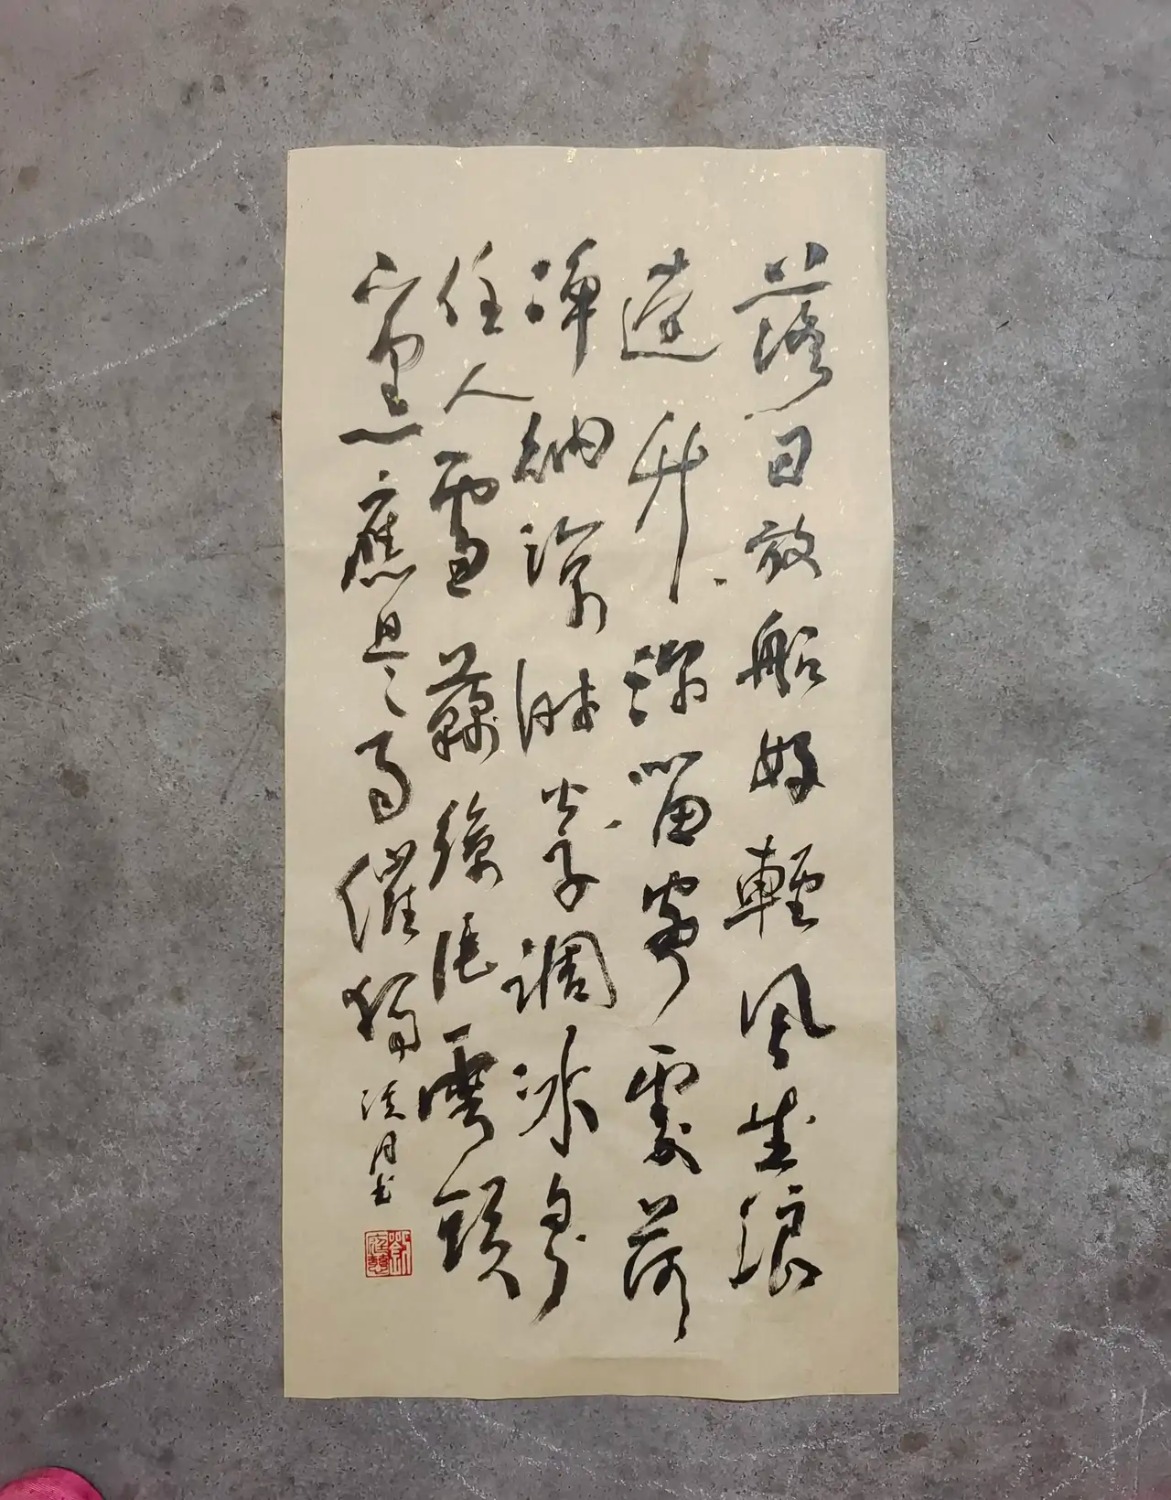 落日放船好輕風生浪
遲竹深留客處荷
淨納涼時公子調冰
佳人雪藕絲片雲頭
上黑應是雨催詩